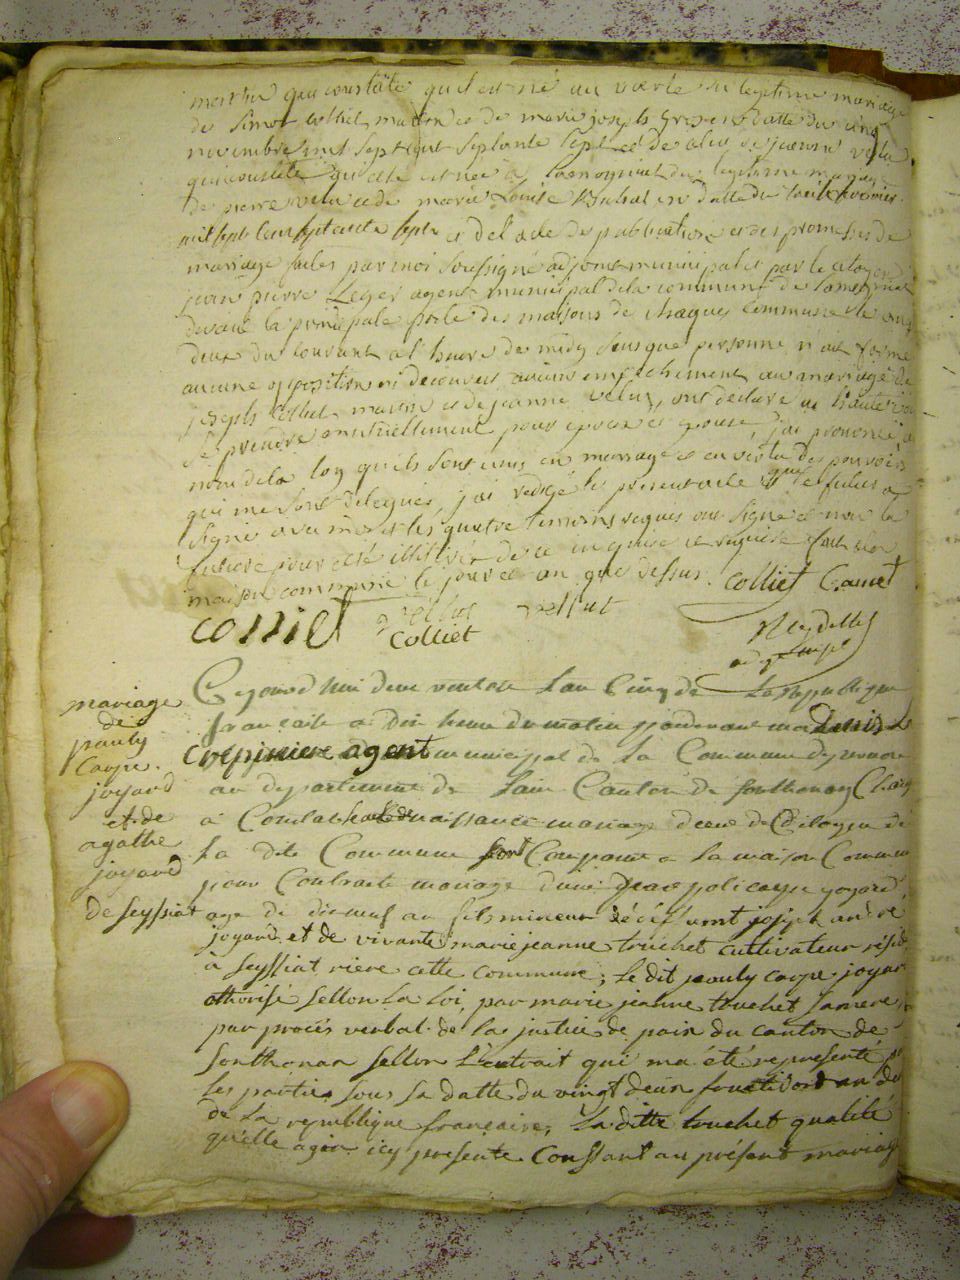 qui constate qu'il est né du légitime mariage
de Simon colliet maron et de marie joseph en datte du cinq
novembre mil sept cent septante sept et de celui de jeanne velu
qui constate qu'elle est née à du legitime mariage
de pierre velu et de marie Louise en datte du
mil sept cent septante sept et de l'acte de publication et des promesses de
mariage faites par moi soussigné adjoint municipal et par le citoyen
jean pierre Leger agent municipal de la commune de
devant la principale porte des maisons de chaques commune le
deux du courant à l'heure de midy sans que personne n'ait formé
aucune opposition ni decouvert aucun empechement au mariage de
joseph colliet maron et de jeanne velu, ont declaré à haute voix
se prendre mutuellement pour epoux et epouse, j'ai prononcé au
nom de la loy qu'ils sont unis en mariage et en vertu des pouvoirs
qui me sont delegués, j'ai redigé le present acte que le futur a
signé avec moi et les quatre temoins requis ont signé et non la
future pour etre illitérée de ce enquise et requise fait en la
maison commune le jour et an que dessus. colliet Camet
colliet velut
Colliet
mariage
de
pauly
Carpe
joyard
et de
agathe
joyard
de seyssiat
Cejourd'hui deux ventose l'an Cinq de La republique
francaise à dix heure du matin pardevant moi Denis Le
Crepiniere agent municipal de La Commune de
au departement de L'ain Canton de sonthonax Chargé
à Constater naissance mariage deces de Citoyen de
La dite Commune sont Comparue à La maison Commune
pour Contracter mariage d'une part jean policarpe joyard
age de dixneuf an fils mineur de défunt joseph andré
joyard et de vivante marie jeanne truchet cultivateur résid
à seyssiat riere cette commune; Le dit pauly carpe joyar
othorisé sellon La Loi, par marie jeanne truchet sa mere
par procès verbal de la justice de paix du canton de
sonthonax sellon L'extrait qui m'a été représenté par
Les parties sous sa datte du vingt deux fructidor an
de La republique francaise, La ditte truchet qualité
qu'elle agit icy presente Constant au présent mariage